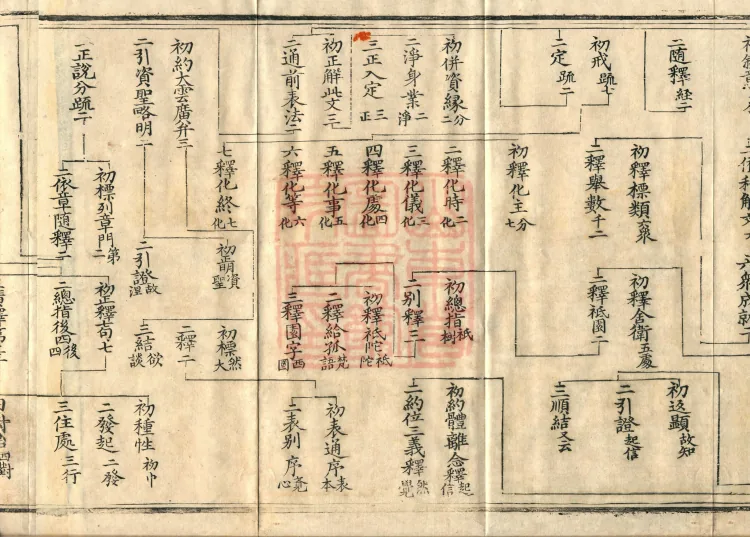 二隨釋經二
初戒疏七
二定疏二
初併資緣分二
二淨身業二淨
三正入定三正
初正解此文三
二通前表法二
初約大雲廣弁三
二引資聖略明二
一正說分疏二
初釋標類衆
二釋舉數千二
初釋化主分七
二釋化時二化
三釋化儀三化
四釋化處四化
五釋化事五化
六釋化等六化
七釋化終七化
初萌資聖
二引證故涅
三結欲談
初標列章門第二
二依章隨釋二
初釋舍衛五處
二釋祇園二
初總指祇樹
二別釋三
初釋祇陀祇陀
二釋給孤梵語
三釋園字西國
初標然大
二釋二
初正釋句七
二總指後四後四
初返顯故知
二引證起信
三順結文云
初約體離念釋起信
二約位三義釋然覺
初表通序表本
二表别序堯心
初種性初巾
二發起二發
三住處三行